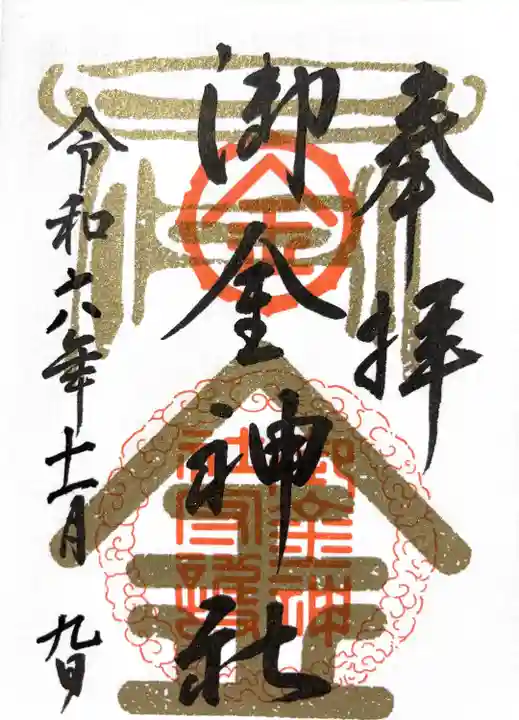 奉拝
御金神社
令和六年十一月九日
金
御金神社